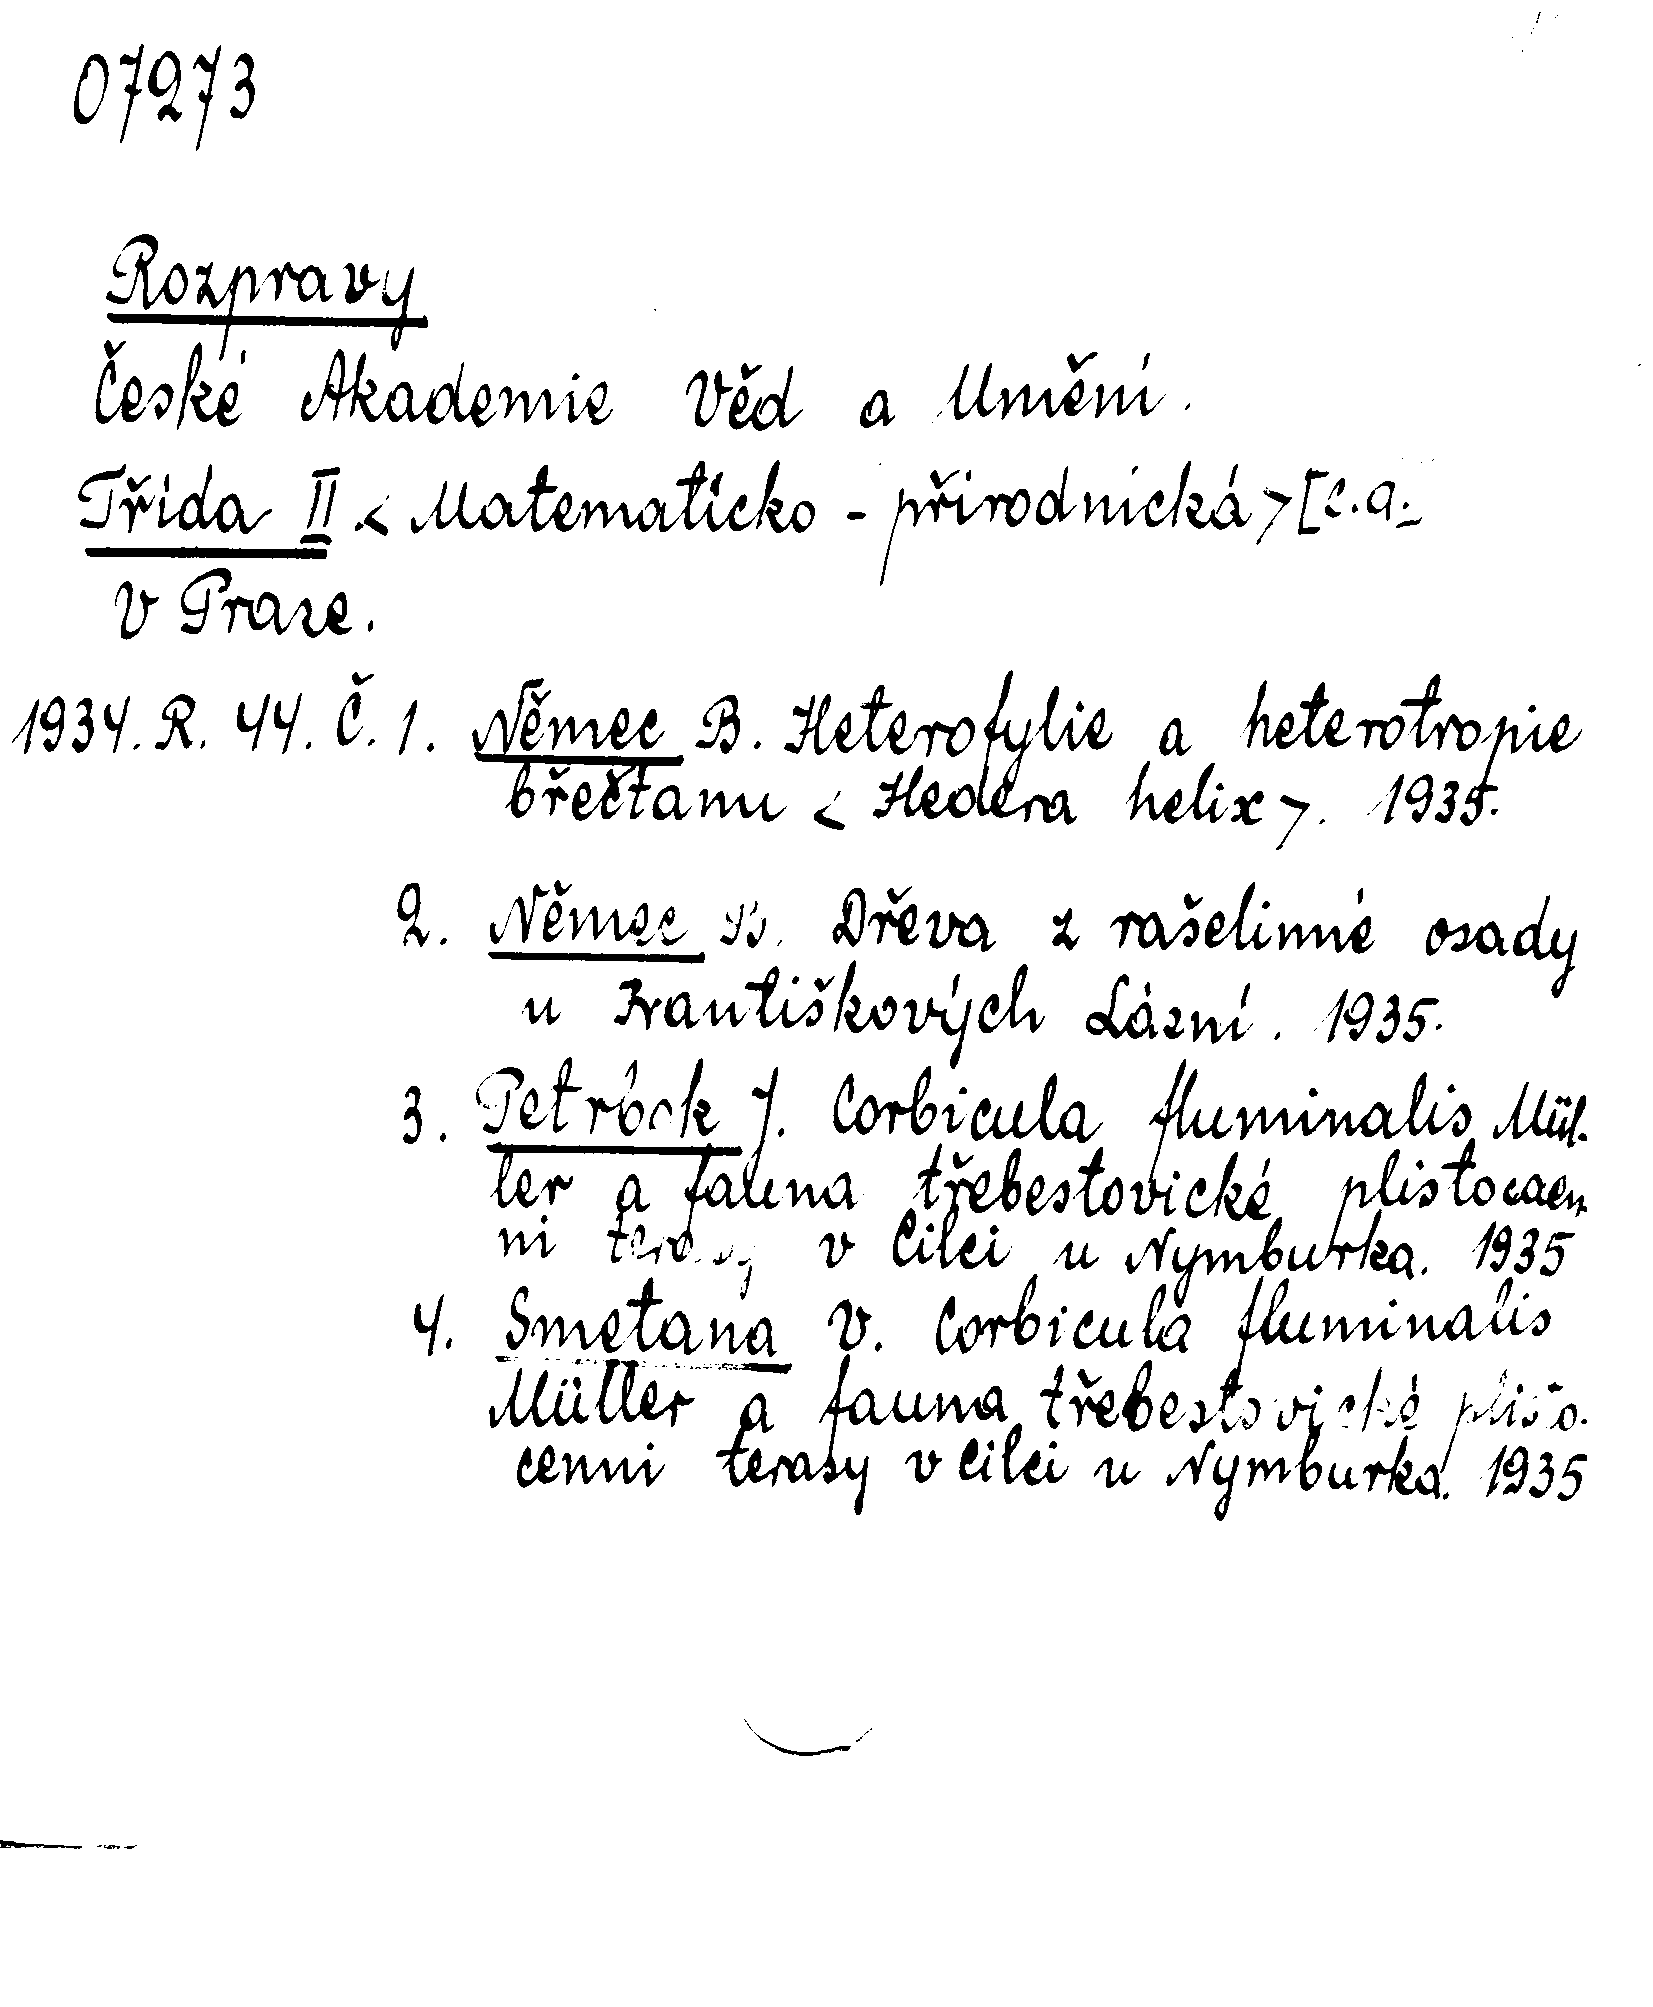 07273
Rozpravy
České Akademie Věd a Umění.
Třída II < Matematicko - přírodnická > [c.a.
v Praze.
1934. R. 44. Č. 1. Němec B. Heterofylie a heterotropie
břečtanu < Hedera helix >. 1935.
2. Němec B. Dřeva z rašelinné osady
u Františkových Lázní. 1935.
3. Petrbok J. Corbicula fluminalis Mül-
ler a fauna třebestovické plistocaen
ni terasy v Cilci u Nymburka. 1935
4. Smetana V. Corbicula fluminalis
Müller a fauna třebestovické plisto-
cenni terasy v Cilci u Nymburka. 1935